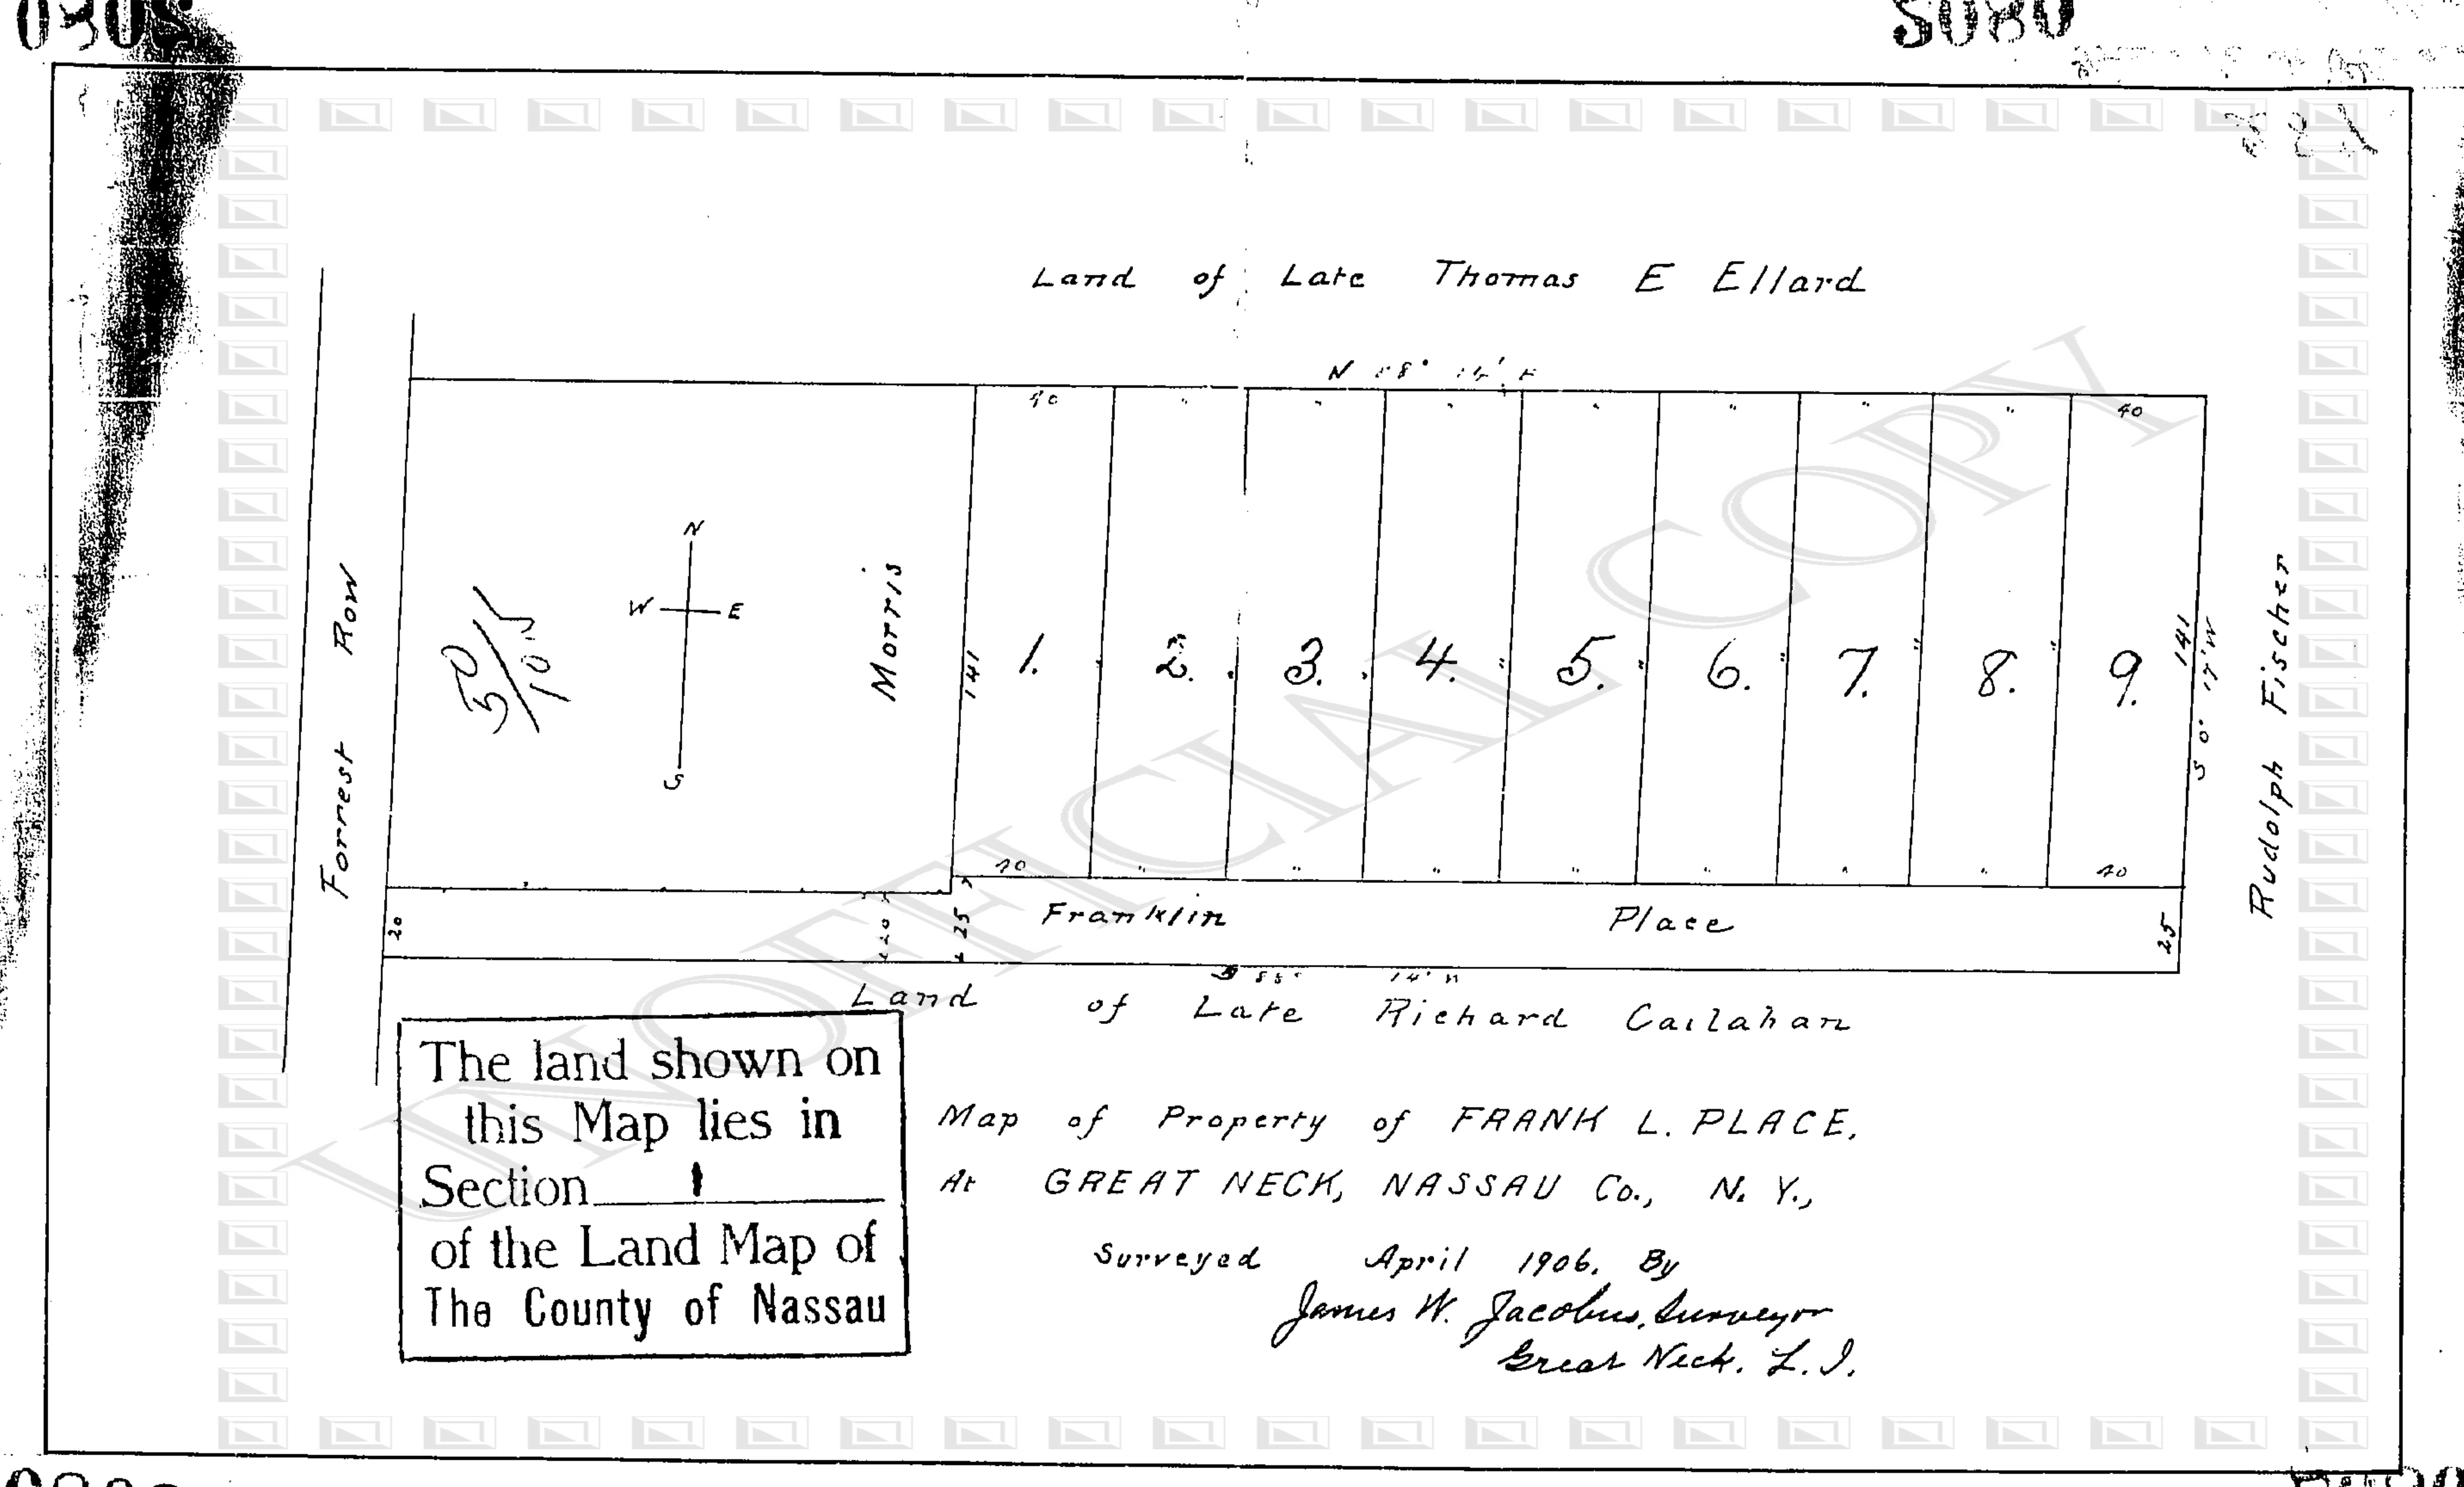 S080
Land of Late Thomas E Ellard
40
40
Forrest Row
50/105
N
W E
S
Morris
141
1. 2. 3. 4. 5. 6. 7. 8. 9.
141
S 0° 17' W
Rudolph Fischer
40
40
20
20
25
Franklin Place
25
14'
Land of Late Richard Callahan
The land shown on
this Map lies in
Section 1
of the Land Map of
The County of Nassau
Map of Property of FRANK L. PLACE.
At GREAT NECK, NASSAU Co., N. Y.,
Surveyed April 1906. By
James W. Jacobus, Surveyor
Great Neck. L. I.
UNOFFICIAL COPY